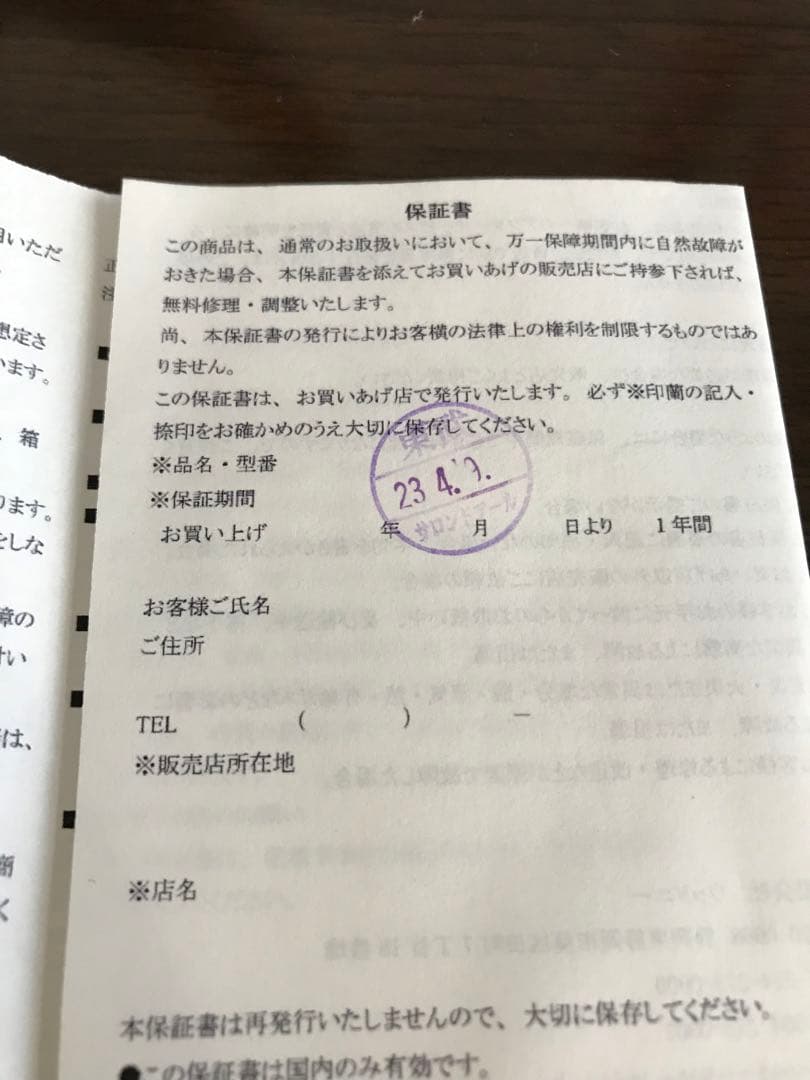 用いただ
想定さ
います。
箱
ります。
をしな
障の
けい
は、
商
く
正
注
保証書
この商品は、通常のお取扱いにおいて、万一保障期間内に自然故障が
おきた場合、本保証書を添えてお買いあげの販売店にご持参下されば、
無料修理・調整いたします。
尚、本保証書の発行によりお客横の法律上の権利を制限するものではあ
りません。
この保証書は、お買いあげ店で発行いたします。必ず※印蘭の記入・
捺印をお確かめのうえ大切に保存してください。
※品名・型番
※保証期間
お買い上げ 年 月 日より 1年間
23 4.
サロンドクール
お客様ご氏名
ご住所
TEL ( ) －
※販売店所在地
※店名
本保証書は再発行いたしませんので、大切に保存してください。
●この保証書は国内のみ有効です。